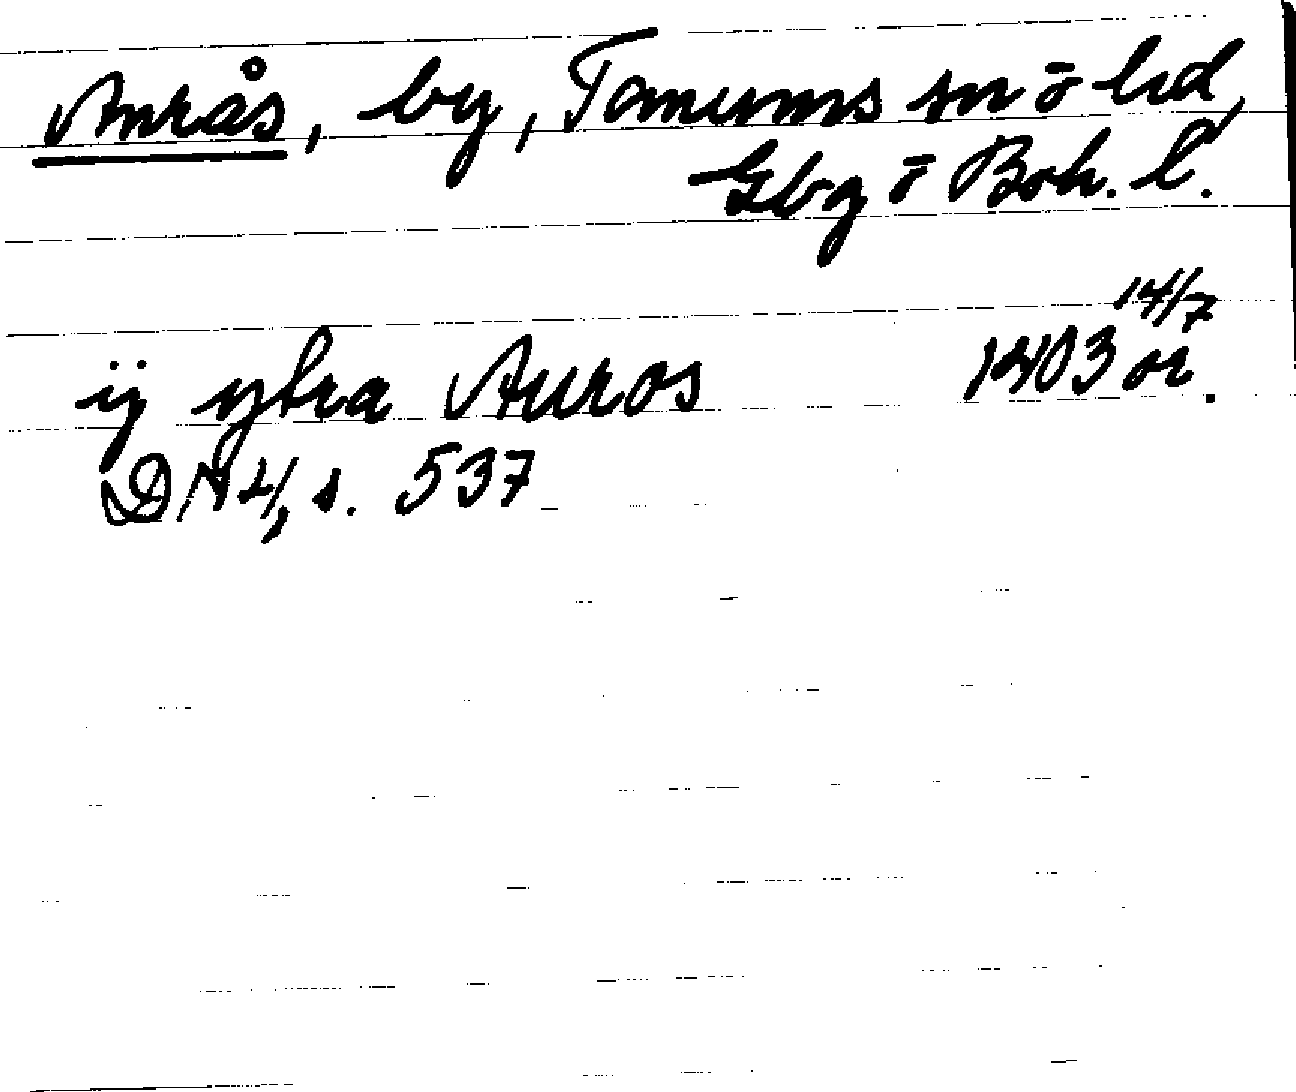 Anrås, by, Tanums sn o hd,
Gbg o Boh. l.
ij ytra Anros 1403 14/7 or.
DN 4, s. 537